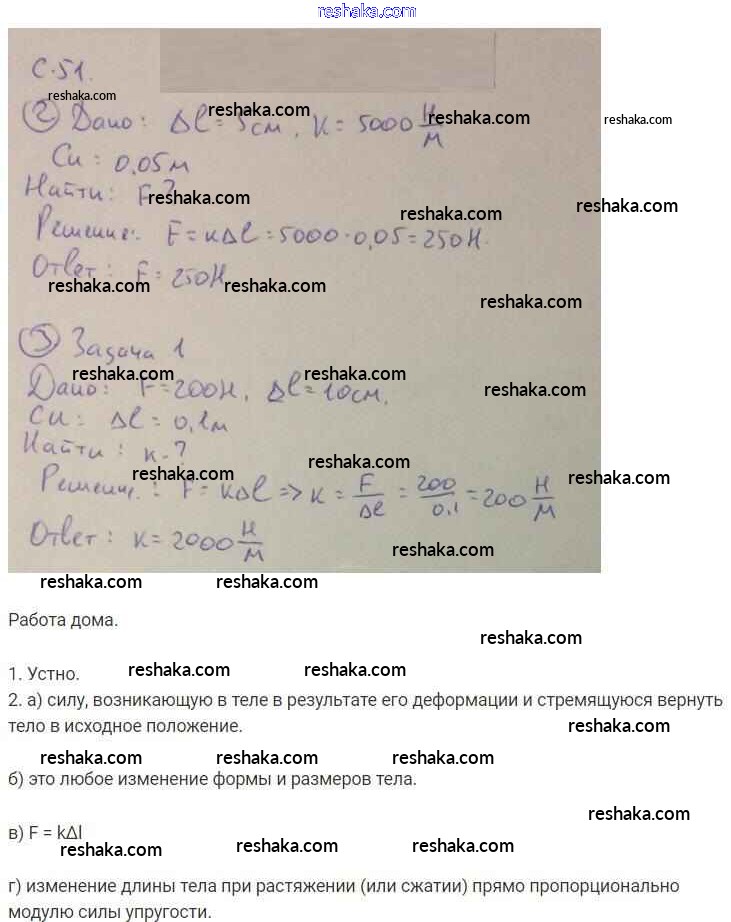 reshaka.com
С.51.
reshaka.com
reshaka.com
reshaka.com
reshaka.com
② Дано: Δl = 5см, к = 5000 Н/М
Си: 0,05м
Найти: F-?
reshaka.com
reshaka.com
reshaka.com
Решение: F = кΔl = 5000·0,05 = 250Н.
Ответ: F = 250Н
reshaka.com
reshaka.com
reshaka.com
③ Задача 1
reshaka.com
reshaka.com
reshaka.com
Дано: F = 200Н, Δl = 10см.
Си: Δl = 0,1м
Найти: к-?
reshaka.com
reshaka.com
reshaka.com
Решение: F = кΔl => к = F/Δl = 200/0.1 = 200 Н/М
Ответ: к = 2000 Н/М
reshaka.com
reshaka.com
reshaka.com
Работа дома.
reshaka.com
1. Устно.
reshaka.com
reshaka.com
2. а) силу, возникающую в теле в результате его деформации и стремящуюся вернуть
тело в исходное положение.
reshaka.com
reshaka.com
reshaka.com
reshaka.com
б) это любое изменение формы и размеров тела.
reshaka.com
в) F = kΔl
reshaka.com
reshaka.com
reshaka.com
г) изменение длины тела при растяжении (или сжатии) прямо пропорционально
модулю силы упругости.